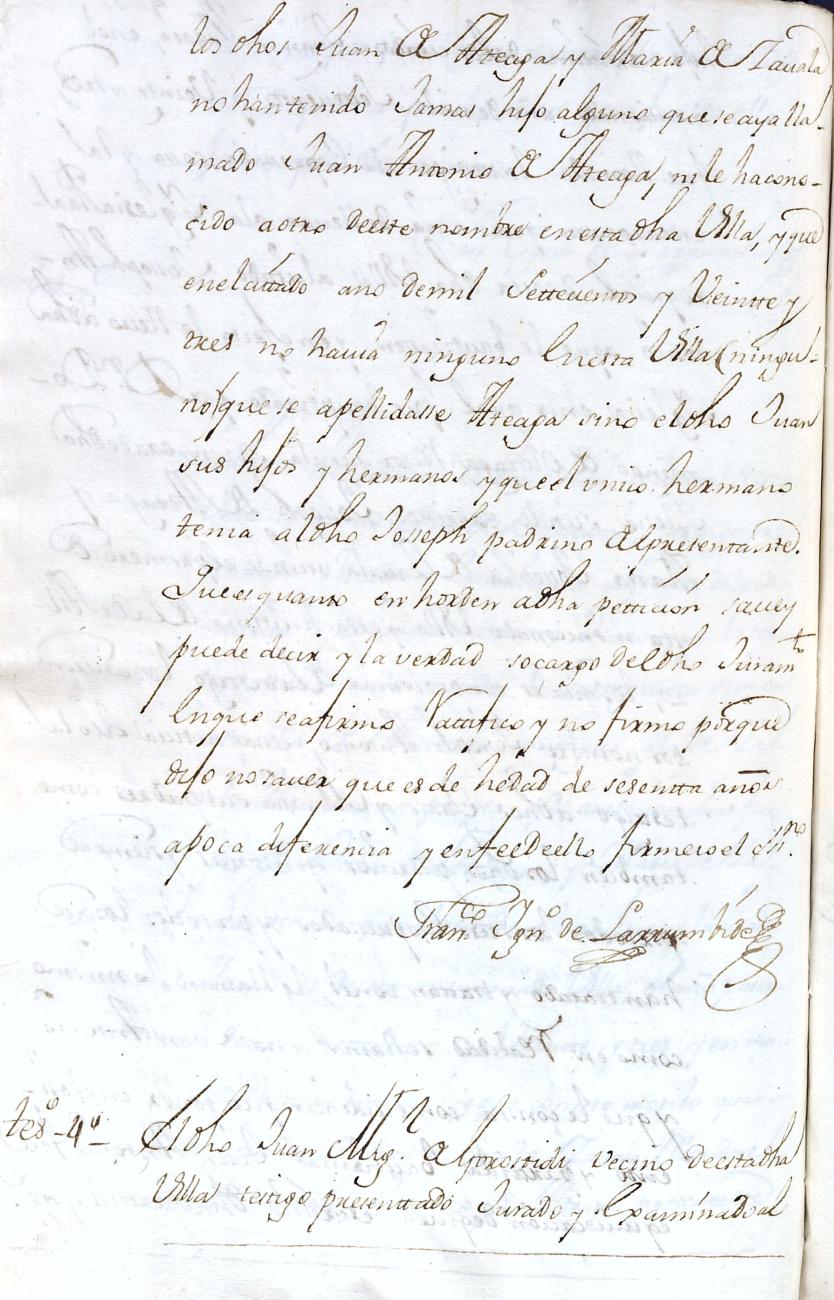 los dhos Juan de Atteaga y Maria de Zavala
no han tenido Jamas hijo alguno que se aya lla-
mado Juan Antonio de Atteaga, ni le ha cono-
cido a otro de este nombre en esta dha Villa, y que
en el cittado año de mil Settecientos y Veintte y
tres no havia ninguno en esta Villa (ningu-
no) que se apellidasse Atteaga sino el dho Juan
sus hijos y hermanos y que el unico hermano
tenia al dho Joseph padrino del presentante.
Que es quanto en horden a dha petticion save y
puede decir y la verdad so cargo del dho Juram.to
En que se afirmo Rattifico y no firmo porque
dijo no saver que es de hedad de sesentta años
a poca diferencia y en fee de ello firme io el SS.no
Fran.co Ign.o de Larrumbide
tes.o - 4.o
El dho Juan Mig.l de Arostidi vecino de esta dha
Villa testigo presenttado Jurado y Examinado al